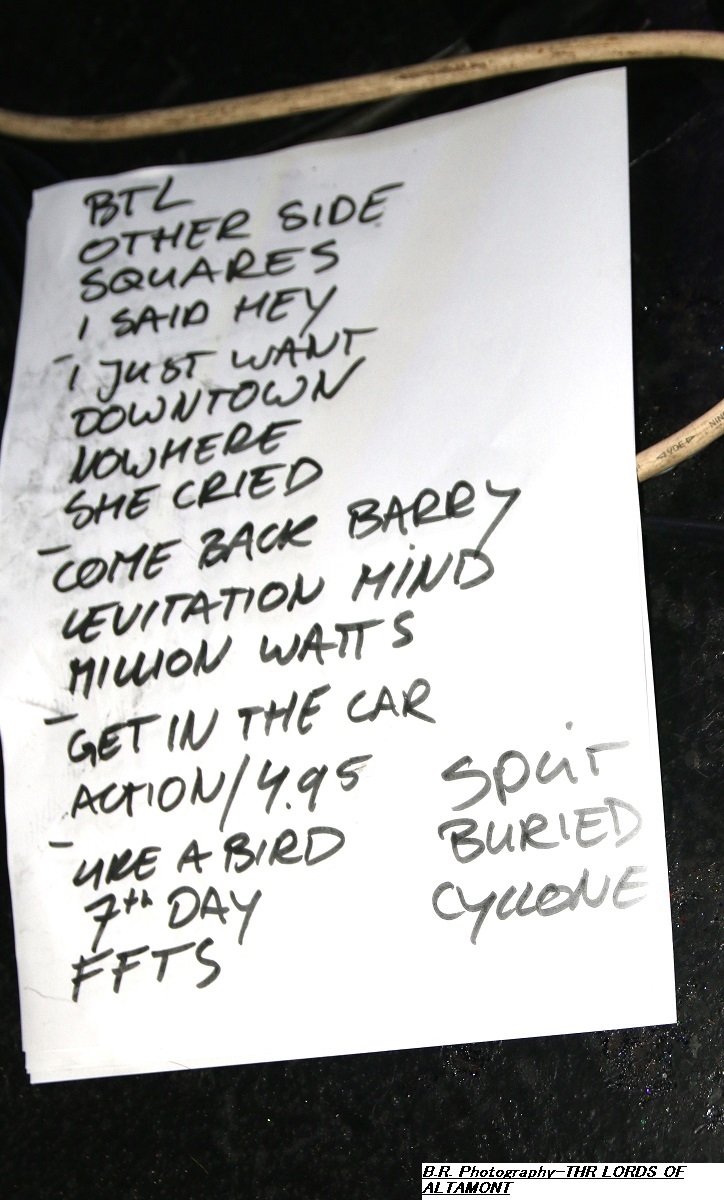 BTL
OTHER SIDE
SQUARES
I SAID HEY
- I JUST WANT
DOWNTOWN
NOWHERE
SHE CRIED
- COME BACK BARRY
LEVITATION MIND
MILLION WATTS
- GET IN THE CAR
ACTION/4.95
- LIKE A BIRD
7th DAY
FFTS
SPLIT
BURIED
CYCLONE
B.R. Photography-THR LORDS OF
ALTAMONT